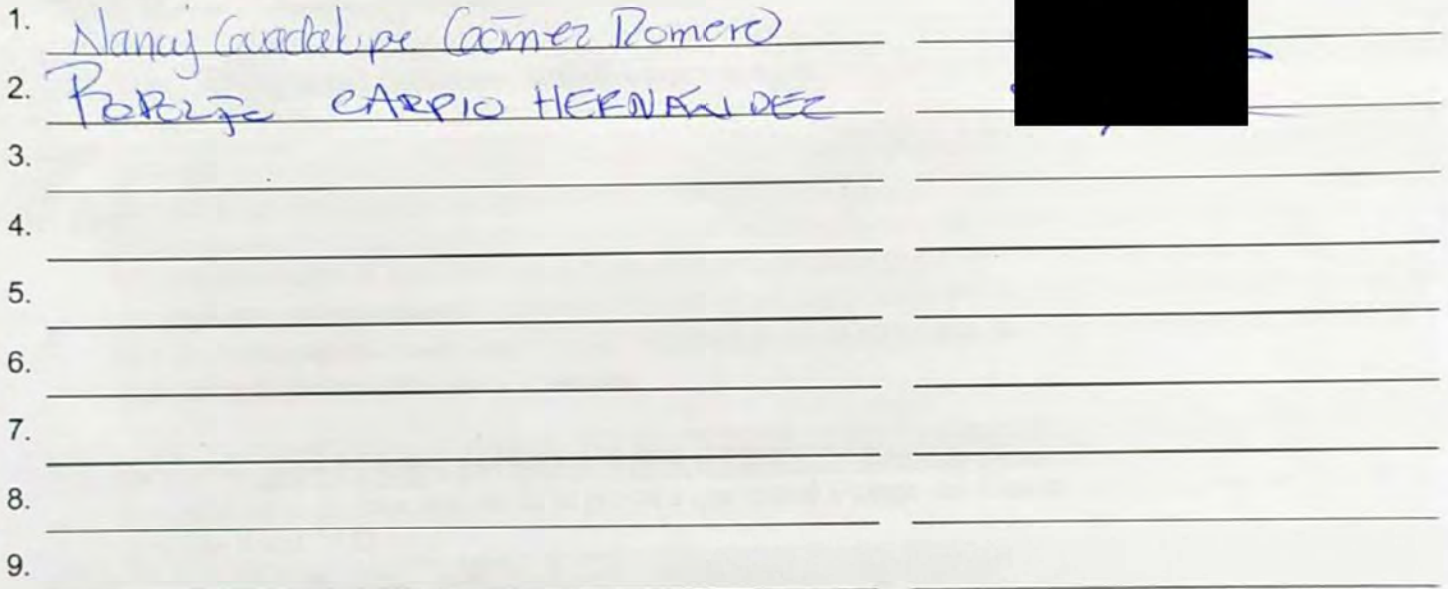 1. Nancy Guadalupe Gómez Romero
2. RODOLFO CARPIO HERNÁNDEZ
3.
4.
5.
6.
7.
8.
9.